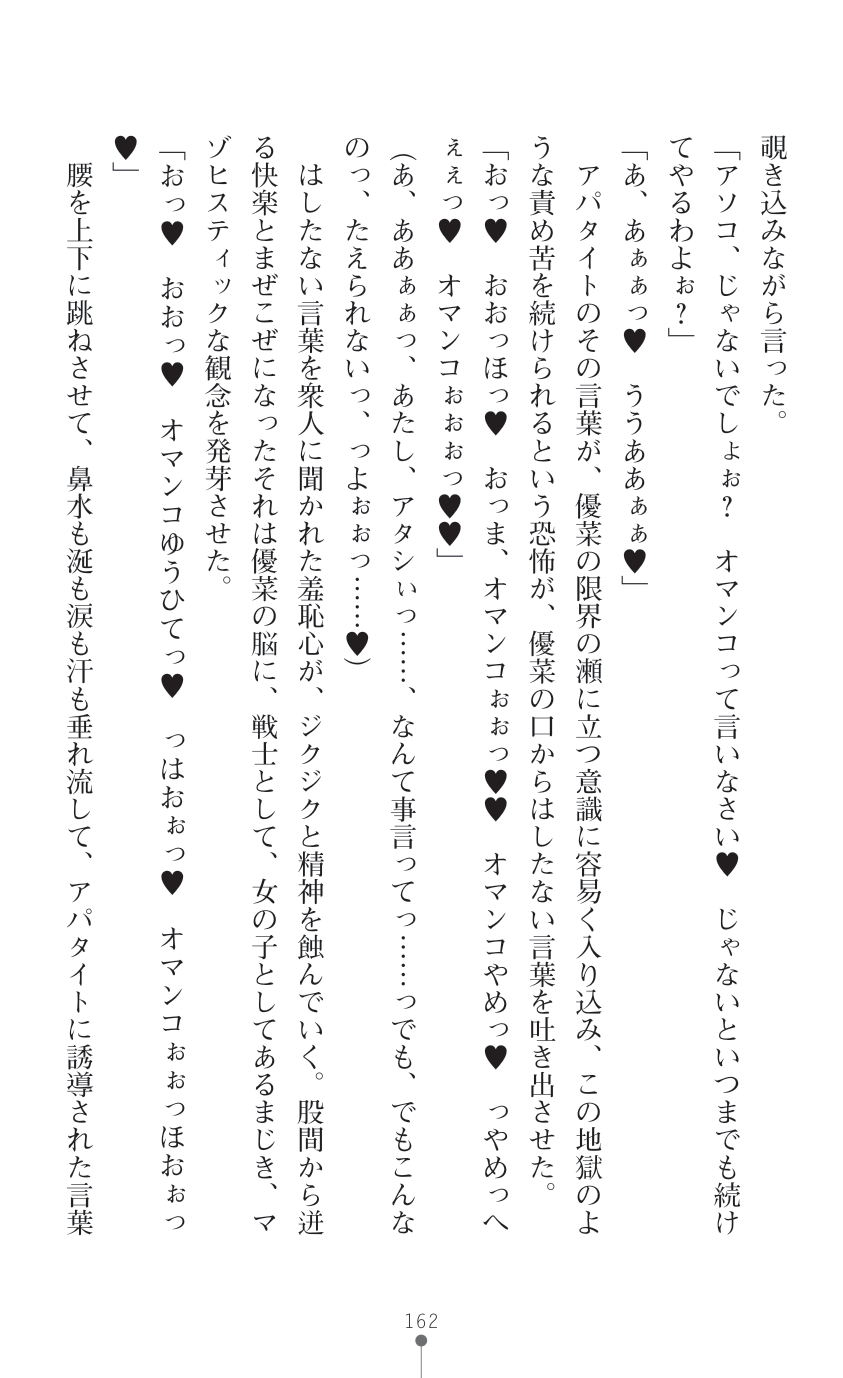 覗き込みながら言った。
「アソコ、じゃないでしょぉ？　オマンコって言いなさい♥　じゃないといつまでも続け
てやるわよぉ？」
「あ、あぁぁっ♥　ううああぁぁ♥」
　アパタイトのその言葉が、優菜の限界の瀬に立つ意識に容易く入り込み、この地獄のよ
うな責め苦を続けられるという恐怖が、優菜の口からはしたない言葉を吐き出させた。
「おっ♥　おおっほっ♥　おっま、オマンコぉぉっ♥♥　オマンコやめっ♥　っやめっへ
ぇぇっ♥　オマンコぉぉぉっ♥♥」
（あ、ああぁぁっ、あたし、アタシぃっ……、なんて事言ってっ……っでも、でもこんな
のっ、たえられないっ、っよぉぉっ……♥）
　はしたない言葉を衆人に聞かれた羞恥心が、ジクジクと精神を蝕んでいく。股間から迸
る快楽とまぜこぜになったそれは優菜の脳に、戦士として、女の子としてあるまじき、マ
ゾヒスティックな観念を発芽させた。
「おっ♥　おおっ♥　オマンコゆうひてっ♥　っはおぉっ♥　オマンコぉぉっほおぉっ
♥」
　腰を上下に跳ねさせて、鼻水も涎も涙も汗も垂れ流して、アパタイトに誘導された言葉
162